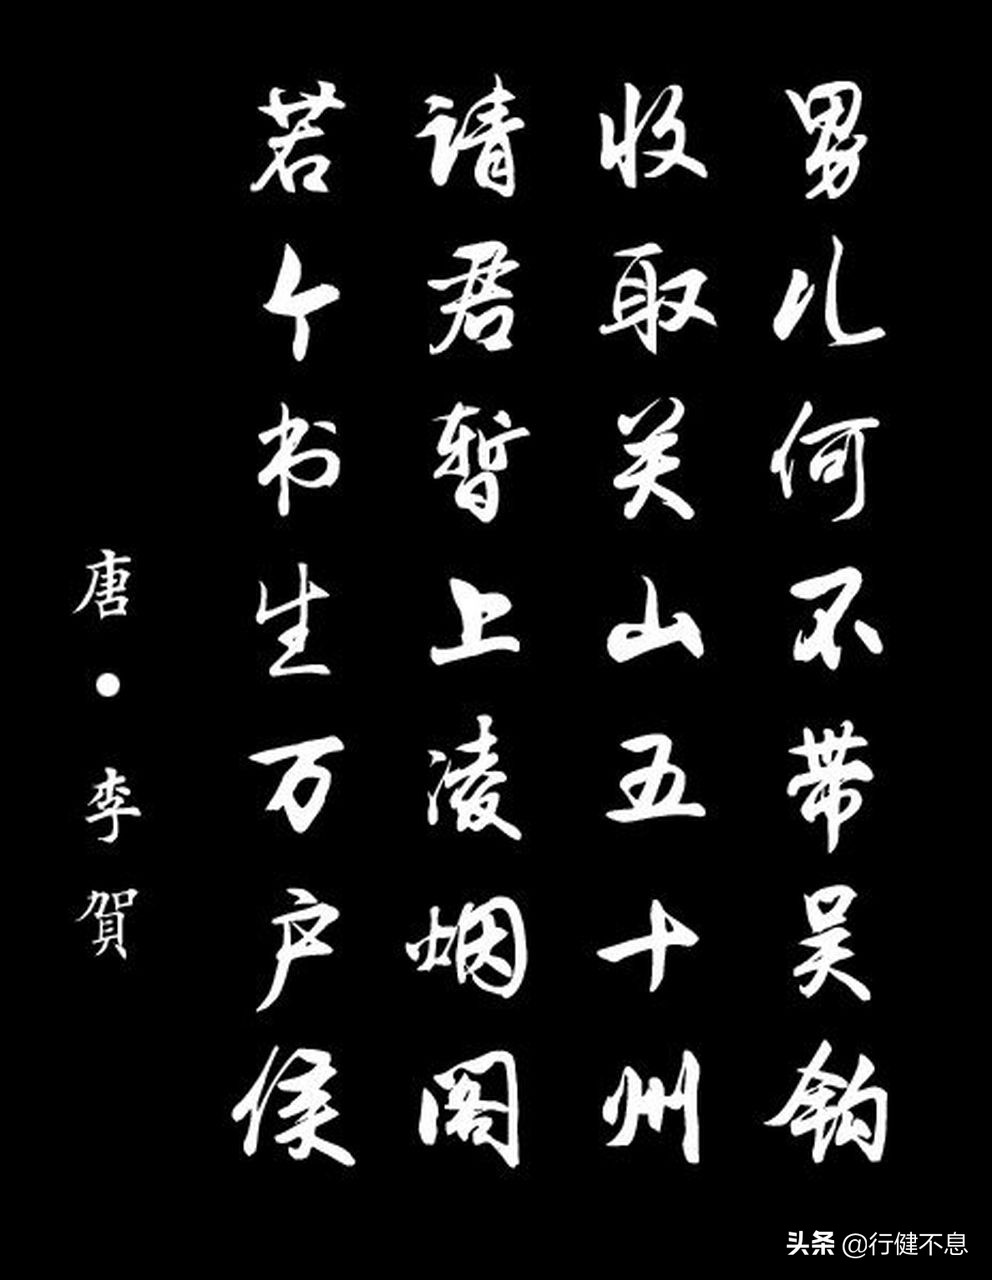 男儿何不带吴钩
收取关山五十州
请君暂上凌烟阁
若个书生万户侯
唐·李賀
头条 @行健不息